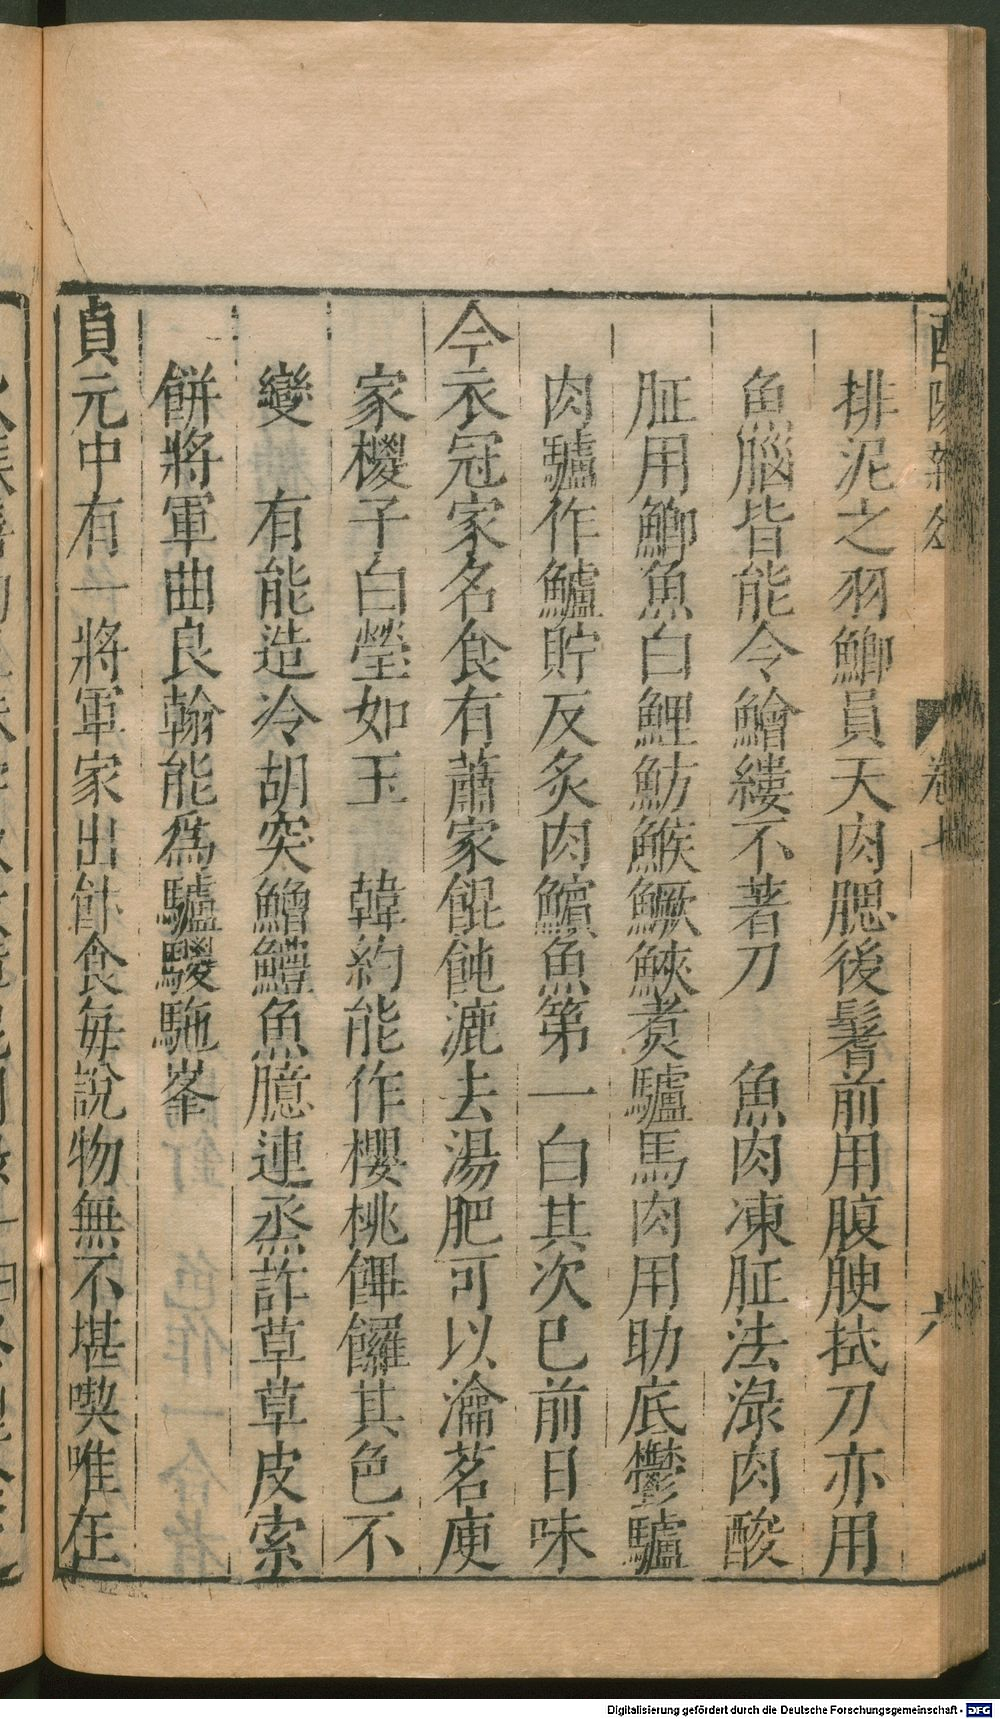 排泥之羽鯽員天肉腮後鬐前用腹腴拭刀亦用
魚腦皆能令鱠縷不著刀　魚肉凍胒法渌肉酸
胒用鯽魚白鯉魴鯸鱖鯪煑驢馬肉用助底鬱驢
肉驢作鱸貯反炙肉鱝魚第一白其次已前日味
今衣冠家名食有蕭家餛飩漉去湯肥可以瀹茗庾
家㯶子白瑩如玉　韓約能作櫻桃饆饠其色不
變　有能造冷胡突鱠鱧魚臆連烝詐草草皮索
餅將軍曲良翰能爲驢騣駞峯
貞元中有一將軍家出飰食每說物無不堪喫唯在
卷七
六
Digitalisierung gefördert durch die Deutsche Forschungsgemeinschaft - DFG